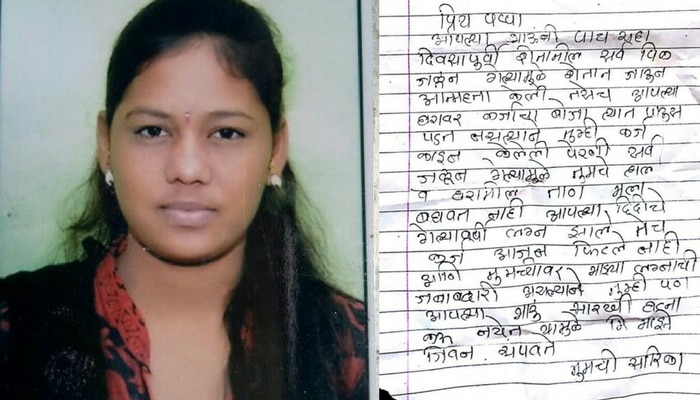 प्रिय पप्पा
आपल्या भाऊंनी पाच सहा
दिवसापूर्वी शेतामील सर्व पिक
जळून गेल्यामुळे शेतात जाऊन
आत्महत्ता केली तसच आपल्या
घरावर कर्जाचा बोजा त्यात पाऊस
पडत नसल्याने तुम्ही कर्ज
काढून केलेली पेरणी सर्व
जळून गेल्यामुळे तुमचे हाल
व घरामील ताण मला
बघवत नाही आपल्या दिदीचे
गेल्यावर्षी लग्न झाले तेच
कर्ज आजून फिटले नाही
आणि तुमच्यावर माझ्या लग्नाची
जबाबदारी असल्याने तुम्ही पण
आपल्या भाऊ सारखी घटना
करू नयेत यामुळे मि माझे
जिवन संपवते
तुमची सारिका